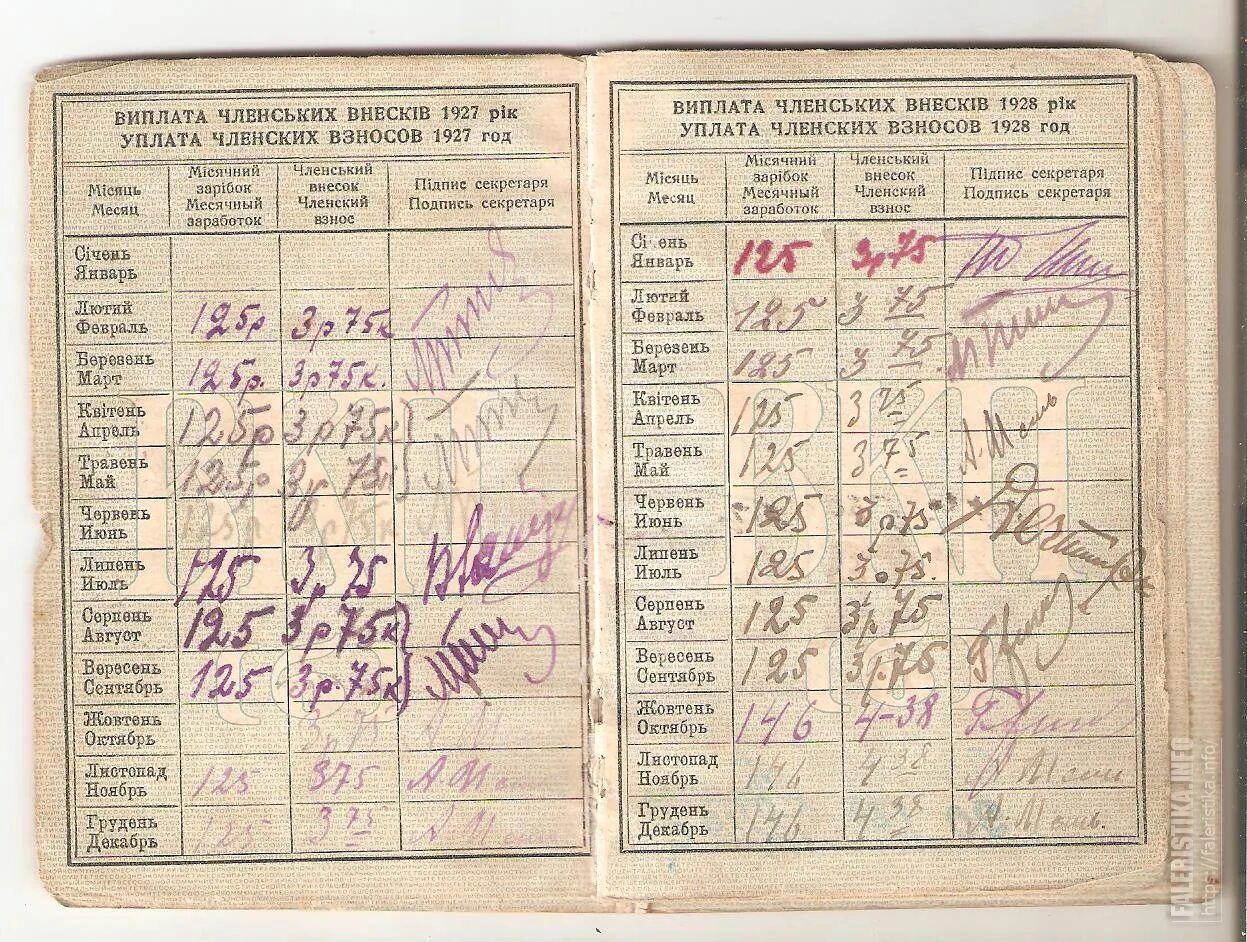 ВИПЛАТА ЧЛЕНСЬКИХ ВНЕСКІВ 1927 рік
УПЛАТА ЧЛЕНСКИХ ВЗНОСОВ 1927 год
Місяць
Месяц
Місячний
зарібок
Месячный
заработок
Членський
внесок
Членский
взнос
Підпис секретаря
Подпись секретаря
Січень
Январь
Лютий
Февраль 125р 3р75к
Березень
Март 125р. 3р75к.
Квітень
Апрель 125р 3р75к
Травень
Май 125р 3р 75к
Червень
Июнь 125р
Липень
Июль 125 3р 75
Серпень
Август 125 3р75к
Вересень
Сентябрь 125 3р.75к
Жовтень
Октябрь 3р75
Листопад
Ноябрь 125 375
Грудень
Декабрь 125 3 75
ВИПЛАТА ЧЛЕНСЬКИХ ВНЕСКІВ 1928 рік
УПЛАТА ЧЛЕНСКИХ ВЗНОСОВ 1928 год
Місяць
Месяц
Місячний
зарібок
Месячный
заработок
Членський
внесок
Членский
взнос
Підпис секретаря
Подпись секретаря
Січень
Январь 125 3р75
Лютий
Февраль 125 3 75
Березень
Март 125 3 75
Квітень
Апрель 125 3 75
Травень
Май 125 3 75
Червень
Июнь 125 3р75
Липень
Июль 125 3р75.
Серпень
Август 125 3р75
Вересень
Сентябрь 125 3р.75
Жовтень
Октябрь 146 4-38
Листопад
Ноябрь 146 4 38
Грудень
Декабрь 146 4 38
FALERISTIKA.INFO
https://faleristika.info